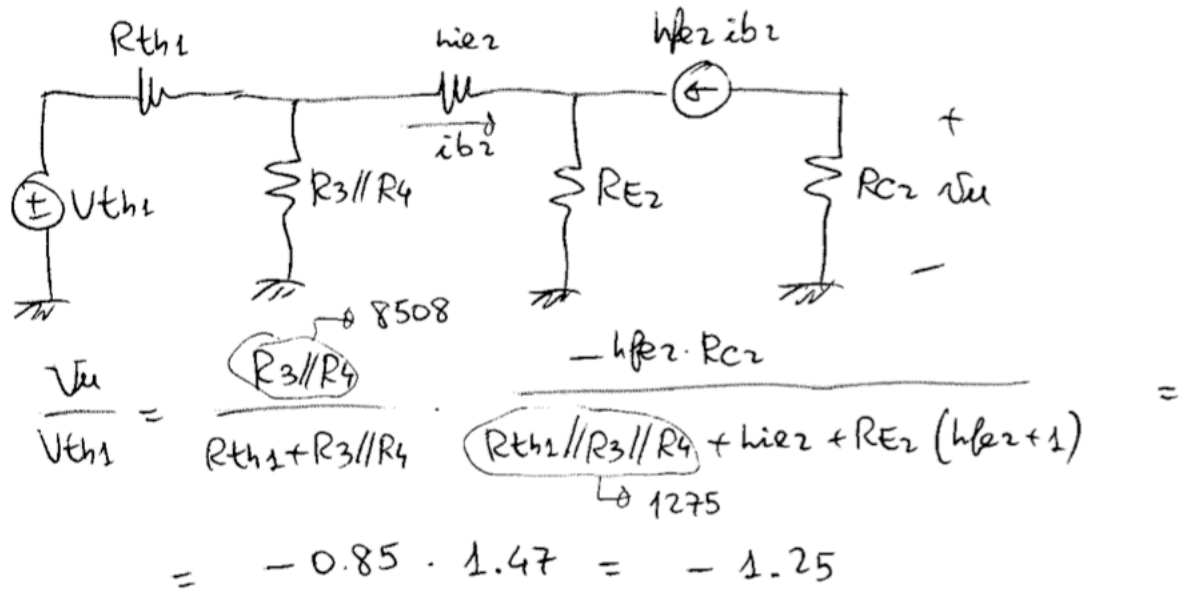 Rth1 hie2 hfe2 ib2
ib2
+
± Vth1 R3//R4 RE2 RC2 Vu
−
8508
Vu / Vth1 = R3//R4 / Rth1+R3//R4 · −hfe2·RC2 / Rth1//R3//R4 + hie2 + RE2 (hfe2+1) =
1275
= − 0.85 · 1.47 = − 1.25